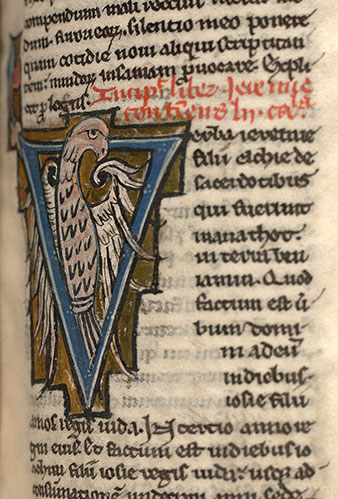 compendium mali
dum. silentio meo ponere
quam cotidie noui aliqui scriptitan
tem. insaniam puocare. Explic
it plogus. Incip liber Ieremie
continens
V erba ieremie
filii elchie de
sacerdotibus
qui fuerunt
in anathot.
in terra ben
iamin. Quod
factum est ū
bum domi
ni ad eū
in diebus
iosie filii
amos regis iuda. In tercio anno re
gni eius. Et factum est in diebus io
achim filii iosie regis iuda. usque ad
consummationem undecimi anni sede